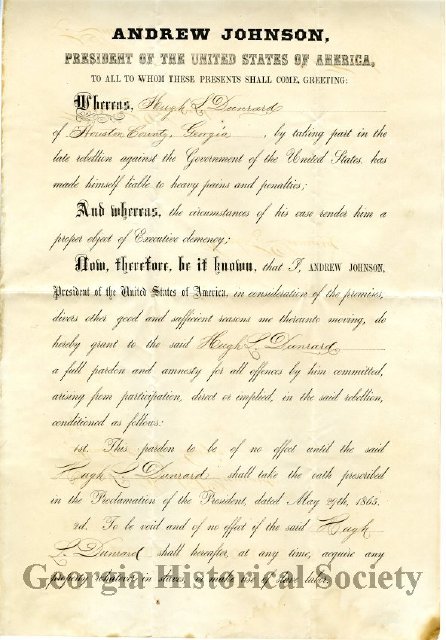 ANDREW JOHNSON,
PRESIDENT OF THE UNITED STATES OF AMERICA,
TO ALL TO WHOM THESE PRESENTS SHALL COME, GREETING:
Whereas, Hugh L Dunrard
of Houston County, Georgia, by taking part in the
late rebellion against the Government of the United States, has
made himself liable to heavy pains and penalties;
And whereas, the circumstances of his case render him a
proper object of Executive clemency;
Now, therefore, be it known, that I, ANDREW JOHNSON,
President of the United States of America, in consideration of the premises,
divers other good and sufficient reasons me thereunto moving, do
hereby grant to the said Hugh L Dunrard
a full pardon and amnesty for all offences by him committed,
arising from participation, direct or implied, in the said rebellion,
conditioned as follows:
1st. This pardon to be of no effect until the said
Hugh L. Dunrard shall take the oath prescribed
in the Proclamation of the President, dated May 29th, 1865.
2d. To be void and of no effect if the said Hugh
L. Dunrard shall hereafter, at any time, acquire any
property whatever in slaves, or make use of slave labor.
Georgia Historical Society